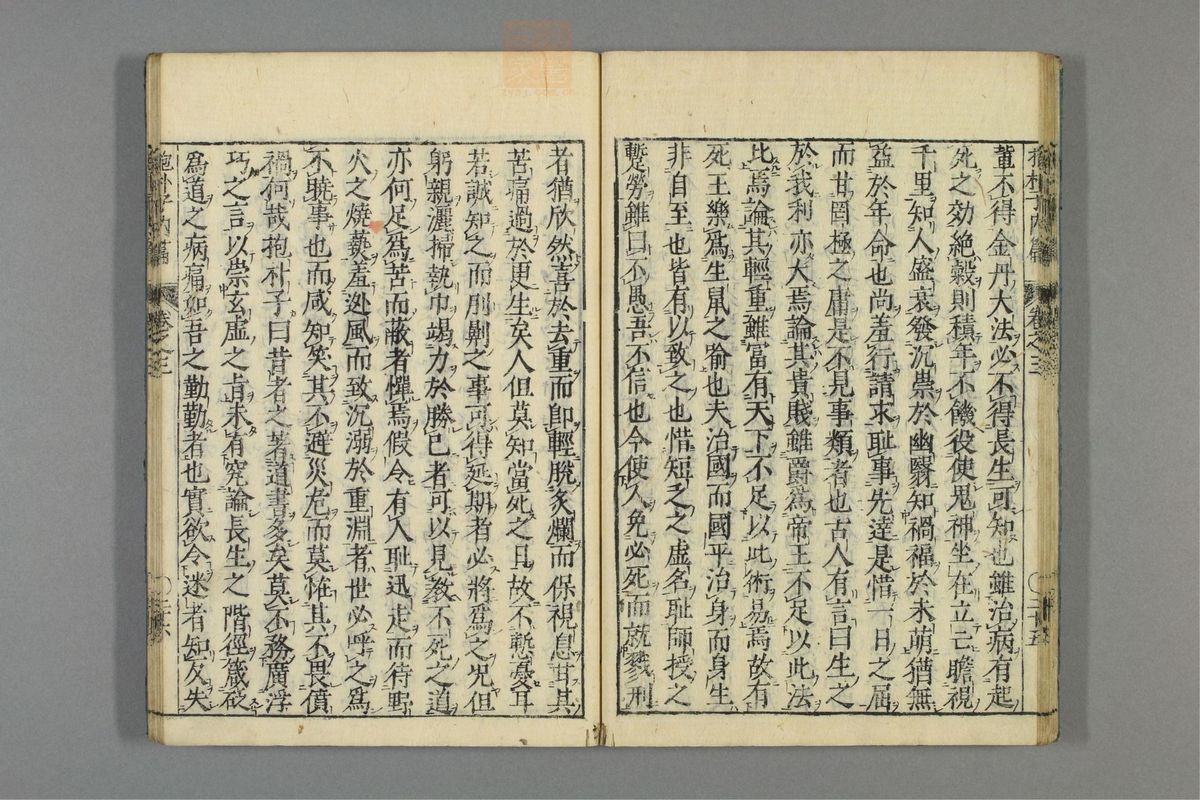 董不得金丹大法必不得長生可知也雖治病有起
死之効絶穀則積年不饑役使鬼神坐在立亡瞻視
千里知人盛衰發沉祟於幽翳知禍福於未萌猶無
益於年命也尚羞行請求耻事先達是惜一日之屈
而甘罔極之庸是不見事類者也古人有言曰生之
於我利亦大焉論其貴賤雖爵爲帝王不足以此法
比焉論其輕重雖富有天下不足以此術易焉故有
死王樂爲生鼠之喻也夫治國而國平治身而身生
非自至也皆有以致之也惜短乏之虛名耻師授之
蹔勞雖曰不愚吾不信也今使人免必死而就戮刑
者猶欣然喜於去重而即輕脫炙爛而保視息甘其
苦痛過於更生矣人但莫知當死之日故不慙憂耳
若誠知之而刖劓之事可得延期者必將爲之況但
躬親灑掃執巾竭力於勝已者可以見教不死之道
亦何足爲苦而蔽者憚焉假令有人耻迅走而待野
火之燒爇羞逊風而致沉溺於重淵者世必呼之爲
不曉事也而咸知笑其不避災危而莫恠其不畏償
禍何哉抱朴子曰昔者之著道書多矣莫不務廣浮
巧之言以崇玄虛之旨未有究論長生之階徑箴砭
爲道之病痛如吾之勤勤者也實欲令迷者知反失
抱朴子内篇
卷之三
二十五
卷之三
二十六